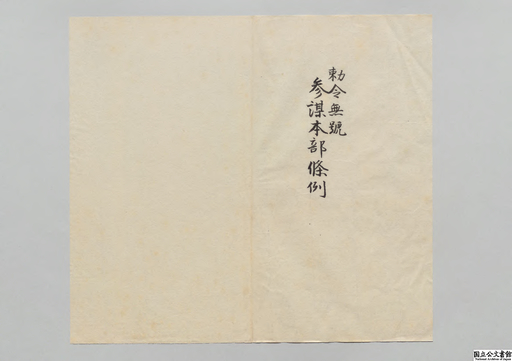 勅令無號
参謀本部條例
国立公文書館
National Archives of Japan